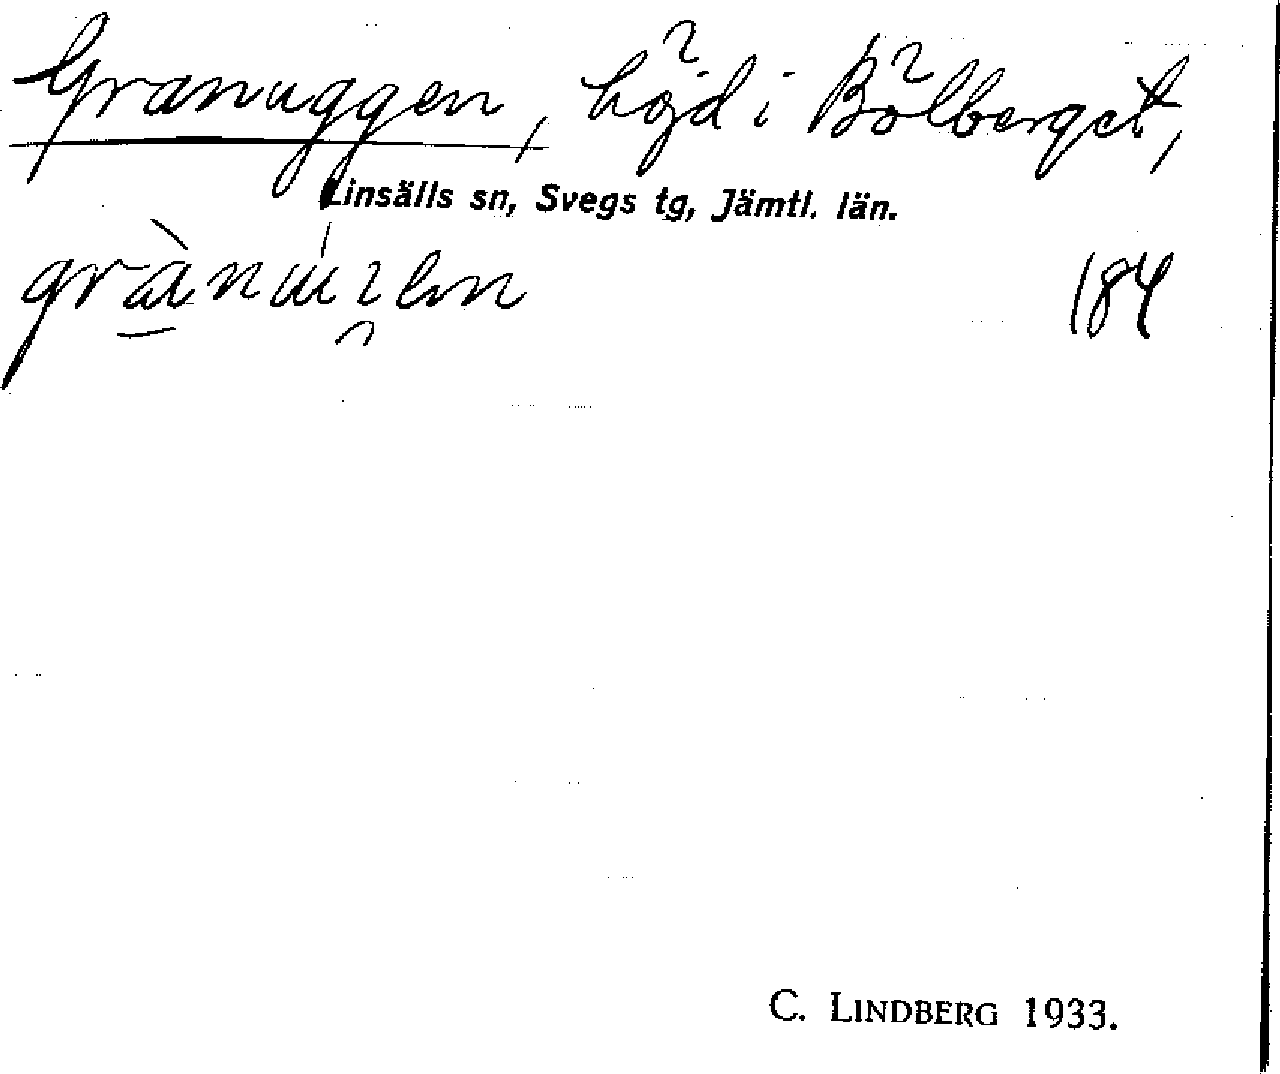 Granuggen, höjd i Bölberget,
Linsälls sn, Svegs tg, Jämtl. län.
184
C. LINDBERG 1933.